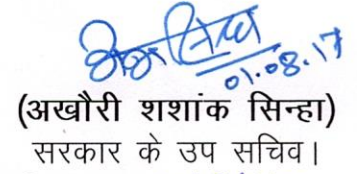 01.08.17
(अखौरी शशांक सिन्हा)
सरकार के उप सचिव।